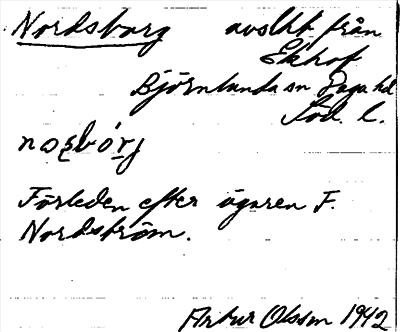 Nordsborg avsLht från
Ekhof
Björnlunda sn Daga hd
Söd. l.
Förleden efter ägaren F.
Nordström.
Artur Olsson 1942